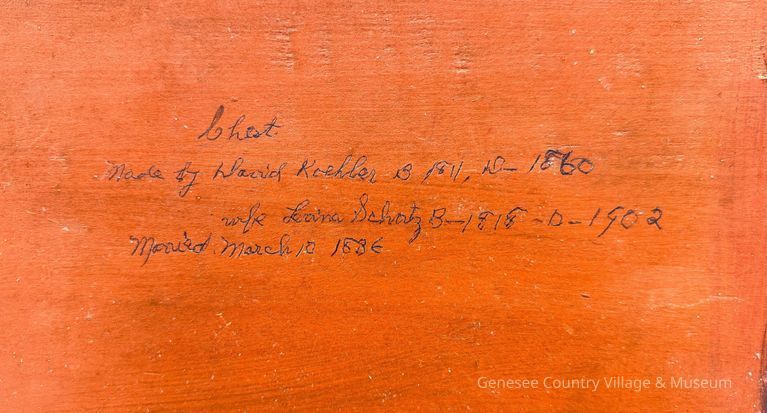 Chest.
Made by David Koehler B 1811, D- 1860
wife Levina Schotz B-1818 - D-1902
Married. March 10 1836
Genesee Country Village & Museum